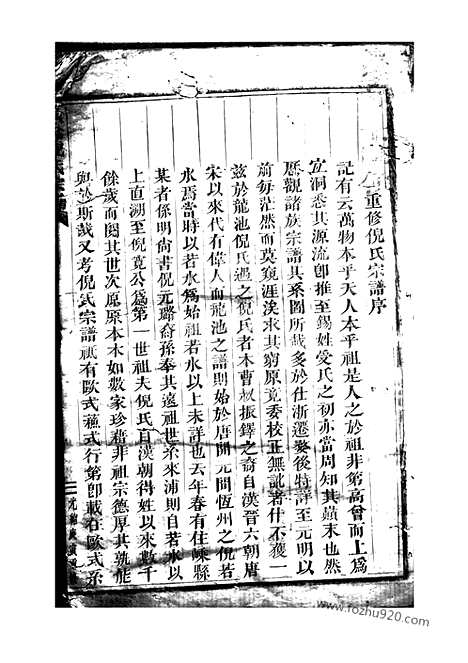 重修倪氏宗譜序
記有云萬物本乎天人本乎祖是人之於祖非第高曾而上爲
宜洞悉其源流卽推至錫姓受氏之初亦當周知其蘋末也然
歷觀諸族宗譜其系圖所哉多於仕浙遷婺後特詳至元明以
前每茫然而莫窺涯涘求其窮原竟委校正無訛者什不獲一
兹於龍池倪氏遇之倪氏者本曹叔振鐸之裔自漢晉六朝唐
宋以來代有偉人而龍池之譜則始於唐開元間恆州之倪若
水焉當時以若水爲始祖若水以上未詳也去年春有住嵊縣
某者係明尚書倪元璐裔孫奉其遠祖世系來浦則自若水以
上直溯至倪寬公爲第一世祖夫倪氏自漢朝得姓以來數千
餘歲而閱其世次原原本本如數家珍藉非祖宗德厚其孰能
與於斯哉又考倪氏宗譜祗有歐式蘇式行第卽載在歐式系
www.fozhu920.com